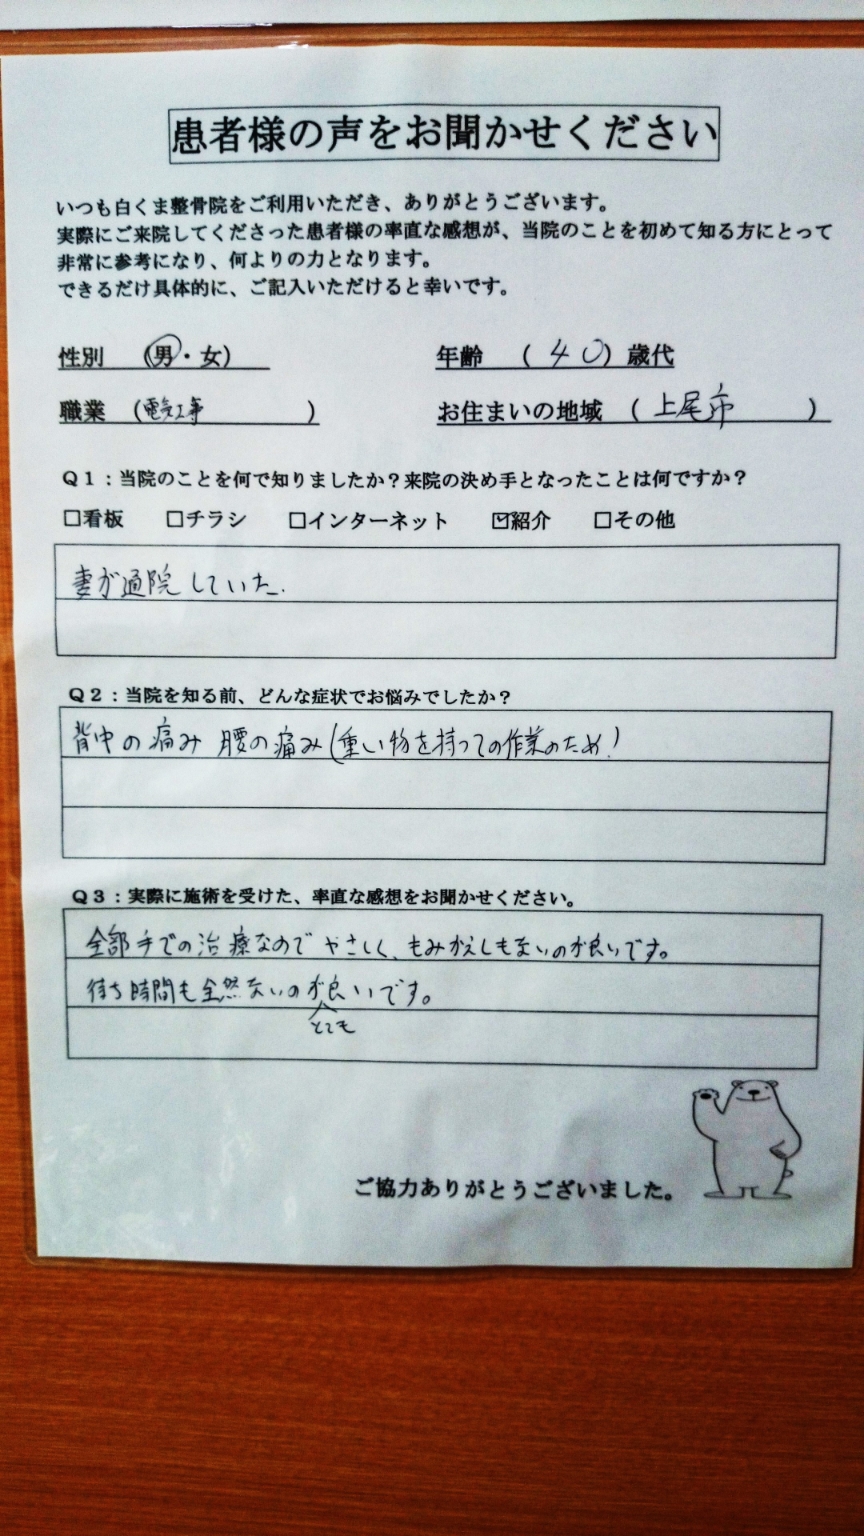 患者様の声をお聞かせください
いつも白くま整骨院をご利用いただき、ありがとうございます。
実際にご来院してくださった患者様の率直な感想が、当院のことを初めて知る方にとって
非常に参考になり、何よりの力となります。
できるだけ具体的に、ご記入いただけると幸いです。
性別 (男・女) 年齢 (40)歳代
職業 (電気工事) お住まいの地域 (上尾市)
Q1：当院のことを何で知りましたか？来院の決め手となったことは何ですか？
□看板 □チラシ □インターネット ☑紹介 □その他
妻が通院していた.
Q2：当院を知る前、どんな症状でお悩みでしたか？
背中の痛み 腰の痛み(重い物を持っての作業のため)
Q3：実際に施術を受けた、率直な感想をお聞かせください。
全部手での治療なのでやさしく、もみかえしもないのが良いです。
待ち時間も全然ないのが良いです。
とても
ご協力ありがとうございました。